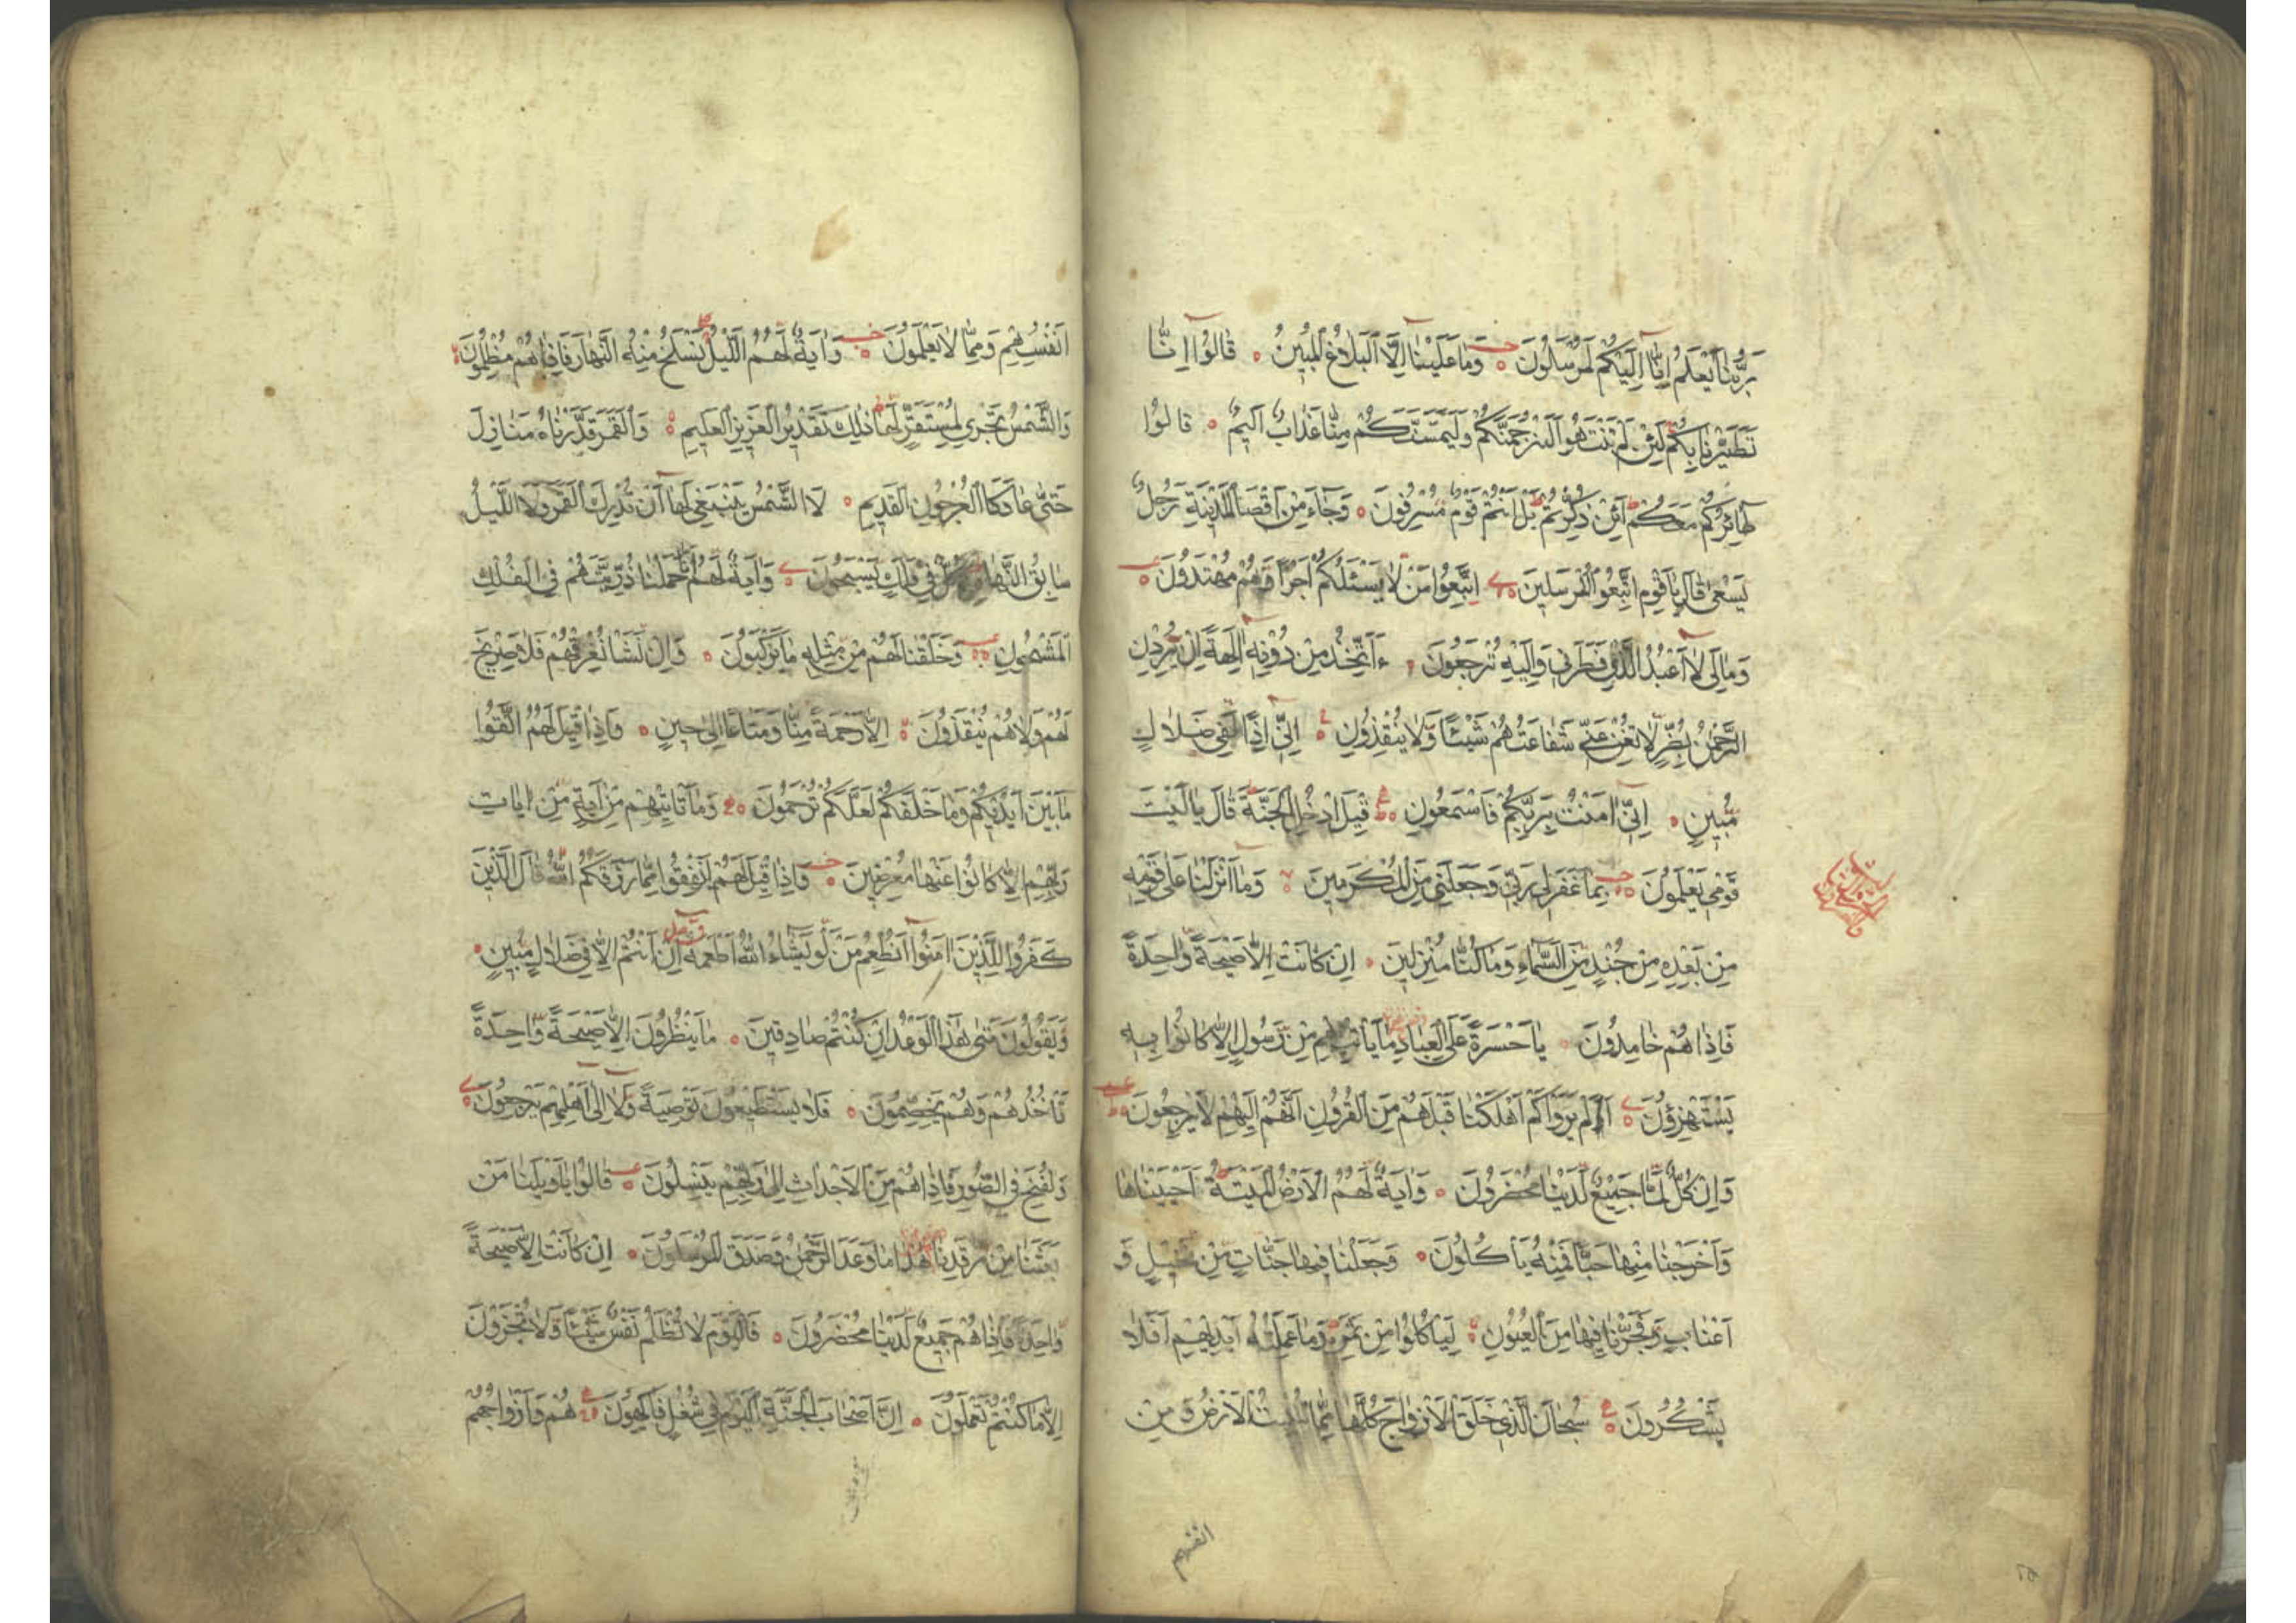 رَبُّنَا يَعْلَمُ إِنَّا إِلَيْكُمْ لَمُرْسَلُونَ وَمَا عَلَيْنَا إِلَّا الْبَلَاغُ الْمُبِينُ قَالُوا إِنَّا
تَطَيَّرْنَا بِكُمْ لَئِنْ لَمْ تَنْتَهُوا لَنَرْجُمَنَّكُمْ وَلَيَمَسَّنَّكُمْ مِنَّا عَذَابٌ أَلِيمٌ قَالُوا
طَائِرُكُمْ مَعَكُمْ أَئِنْ ذُكِّرْتُمْ بَلْ أَنْتُمْ قَوْمٌ مُسْرِفُونَ وَجَاءَ مِنْ أَقْصَا الْمَدِينَةِ رَجُلٌ
يَسْعَى قَالَ يَا قَوْمِ اتَّبِعُوا الْمُرْسَلِينَ اتَّبِعُوا مَنْ لَا يَسْئَلُكُمْ أَجْرًا وَهُمْ مُهْتَدُونَ
وَمَا لِيَ لَا أَعْبُدُ الَّذِي فَطَرَنِي وَإِلَيْهِ تُرْجَعُونَ ءَأَتَّخِذُ مِنْ دُونِهِ آلِهَةً إِنْ يُرِدْنِ
الرَّحْمٰنُ بِضُرٍّ لَا تُغْنِ عَنِّي شَفَاعَتُهُمْ شَيْئًا وَلَا يُنْقِذُونِ إِنِّي إِذًا لَفِي ضَلَالٍ
مُبِينٍ إِنِّي آمَنْتُ بِرَبِّكُمْ فَاسْمَعُونِ قِيلَ ادْخُلِ الْجَنَّةَ قَالَ يَا لَيْتَ
قَوْمِي يَعْلَمُونَ بِمَا غَفَرَ لِي رَبِّي وَجَعَلَنِي مِنَ الْمُكْرَمِينَ وَمَا أَنْزَلْنَا عَلَى قَوْمِهِ
مِنْ بَعْدِهِ مِنْ جُنْدٍ مِنَ السَّمَاءِ وَمَا كُنَّا مُنْزِلِينَ إِنْ كَانَتْ إِلَّا صَيْحَةً وَاحِدَةً
فَإِذَا هُمْ خَامِدُونَ يَا حَسْرَةً عَلَى الْعِبَادِ مَا يَأْتِيهِمْ مِنْ رَسُولٍ إِلَّا كَانُوا بِهِ
يَسْتَهْزِؤُنَ أَلَمْ يَرَوْا كَمْ أَهْلَكْنَا قَبْلَهُمْ مِنَ الْقُرُونِ أَنَّهُمْ إِلَيْهِمْ لَا يَرْجِعُونَ
وَإِنْ كُلٌّ لَمَّا جَمِيعٌ لَدَيْنَا مُحْضَرُونَ وَآيَةٌ لَهُمُ الْأَرْضُ الْمَيْتَةُ أَحْيَيْنَاهَا
وَأَخْرَجْنَا مِنْهَا حَبًّا فَمِنْهُ يَأْكُلُونَ وَجَعَلْنَا فِيهَا جَنَّاتٍ مِنْ نَخِيلٍ وَ
أَعْنَابٍ وَفَجَّرْنَا فِيهَا مِنَ الْعُيُونِ لِيَأْكُلُوا مِنْ ثَمَرِهِ وَمَا عَمِلَتْهُ أَيْدِيهِمْ أَفَلَا
يَشْكُرُونَ سُبْحَانَ الَّذِي خَلَقَ الْأَزْوَاجَ كُلَّهَا مِمَّا تُنْبِتُ الْأَرْضُ وَمِنْ
انفسهم
أَنْفُسِهِمْ وَمِمَّا لَا يَعْلَمُونَ وَآيَةٌ لَهُمُ اللَّيْلُ نَسْلَخُ مِنْهُ النَّهَارَ فَإِذَا هُمْ مُظْلِمُونَ
وَالشَّمْسُ تَجْرِي لِمُسْتَقَرٍّ لَهَا ذٰلِكَ تَقْدِيرُ الْعَزِيزِ الْعَلِيمِ وَالْقَمَرَ قَدَّرْنَاهُ مَنَازِلَ
حَتَّى عَادَ كَالْعُرْجُونِ الْقَدِيمِ لَا الشَّمْسُ يَنْبَغِي لَهَا أَنْ تُدْرِكَ الْقَمَرَ وَلَا اللَّيْلُ
سَابِقُ النَّهَارِ وَكُلٌّ فِي فَلَكٍ يَسْبَحُونَ وَآيَةٌ لَهُمْ أَنَّا حَمَلْنَا ذُرِّيَّتَهُمْ فِي الْفُلْكِ
الْمَشْحُونِ وَخَلَقْنَا لَهُمْ مِنْ مِثْلِهِ مَا يَرْكَبُونَ وَإِنْ نَشَأْ نُغْرِقْهُمْ فَلَا صَرِيخَ
لَهُمْ وَلَا هُمْ يُنْقَذُونَ إِلَّا رَحْمَةً مِنَّا وَمَتَاعًا إِلَى حِينٍ وَإِذَا قِيلَ لَهُمُ اتَّقُوا
مَا بَيْنَ أَيْدِيكُمْ وَمَا خَلْفَكُمْ لَعَلَّكُمْ تُرْحَمُونَ وَمَا تَأْتِيهِمْ مِنْ آيَةٍ مِنْ آيَاتِ
رَبِّهِمْ إِلَّا كَانُوا عَنْهَا مُعْرِضِينَ وَإِذَا قِيلَ لَهُمْ أَنْفِقُوا مِمَّا رَزَقَكُمُ اللّٰهُ قَالَ الَّذِينَ
كَفَرُوا لِلَّذِينَ آمَنُوا أَنُطْعِمُ مَنْ لَوْ يَشَاءُ اللّٰهُ أَطْعَمَهُ إِنْ أَنْتُمْ إِلَّا فِي ضَلَالٍ مُبِينٍ
وَيَقُولُونَ مَتَى هٰذَا الْوَعْدُ إِنْ كُنْتُمْ صَادِقِينَ مَا يَنْظُرُونَ إِلَّا صَيْحَةً وَاحِدَةً
تَأْخُذُهُمْ وَهُمْ يَخِصِّمُونَ فَلَا يَسْتَطِيعُونَ تَوْصِيَةً وَلَا إِلَى أَهْلِهِمْ يَرْجِعُونَ
وَنُفِخَ فِي الصُّورِ فَإِذَا هُمْ مِنَ الْأَجْدَاثِ إِلَى رَبِّهِمْ يَنْسِلُونَ قَالُوا يَا وَيْلَنَا مَنْ
بَعَثَنَا مِنْ مَرْقَدِنَا هٰذَا مَا وَعَدَ الرَّحْمٰنُ وَصَدَقَ الْمُرْسَلُونَ إِنْ كَانَتْ إِلَّا صَيْحَةً
وَاحِدَةً فَإِذَا هُمْ جَمِيعٌ لَدَيْنَا مُحْضَرُونَ فَالْيَوْمَ لَا تُظْلَمُ نَفْسٌ شَيْئًا وَلَا تُجْزَوْنَ
إِلَّا مَا كُنْتُمْ تَعْمَلُونَ إِنَّ أَصْحَابَ الْجَنَّةِ الْيَوْمَ فِي شُغُلٍ فَاكِهُونَ هُمْ وَأَزْوَاجُهُمْ